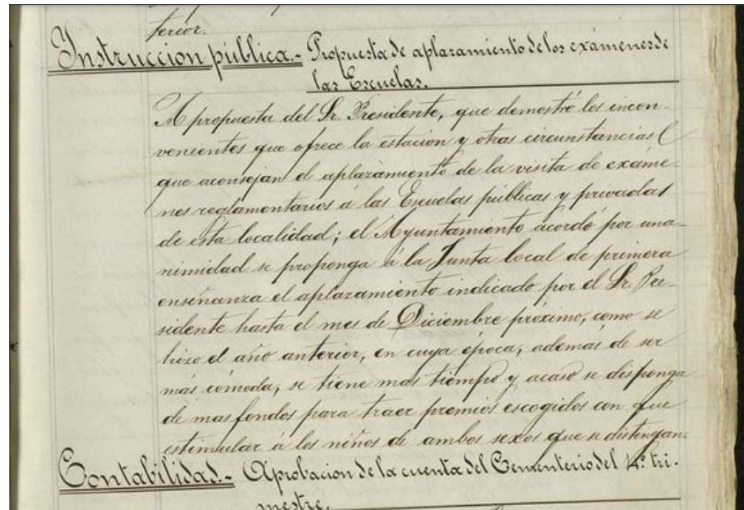 terior.
Instruccion pública.- Propuesta de aplazamiento de los exámenes de
las Escuelas.
A propuesta del Sr. Presidente, que demostró los incon-
venientes que ofrece la estacion y otras circunstancias
que aconsejan el aplazamiento de la visita de exáme-
nes reglamentarios á las Escuelas públicas y privadas
de esta localidad; el Ayuntamiento acordó por una-
nimidad se proponga á la Junta local de primera
enseñanza el aplazamiento indicado por el Sr. Pre-
sidente hasta el mes de Diciembre próximo, como se
hizo el año anterior, en cuya época, además de ser
más cómoda, se tiene mas tiempo y acaso se disponga
de mas fondos para traer premios escogidos con que
estimular á los niños de ambos sexos que se distingan.
Contabilidad.- Aprobacion de la cuenta del Cementerio del 4º tri-
mestre.